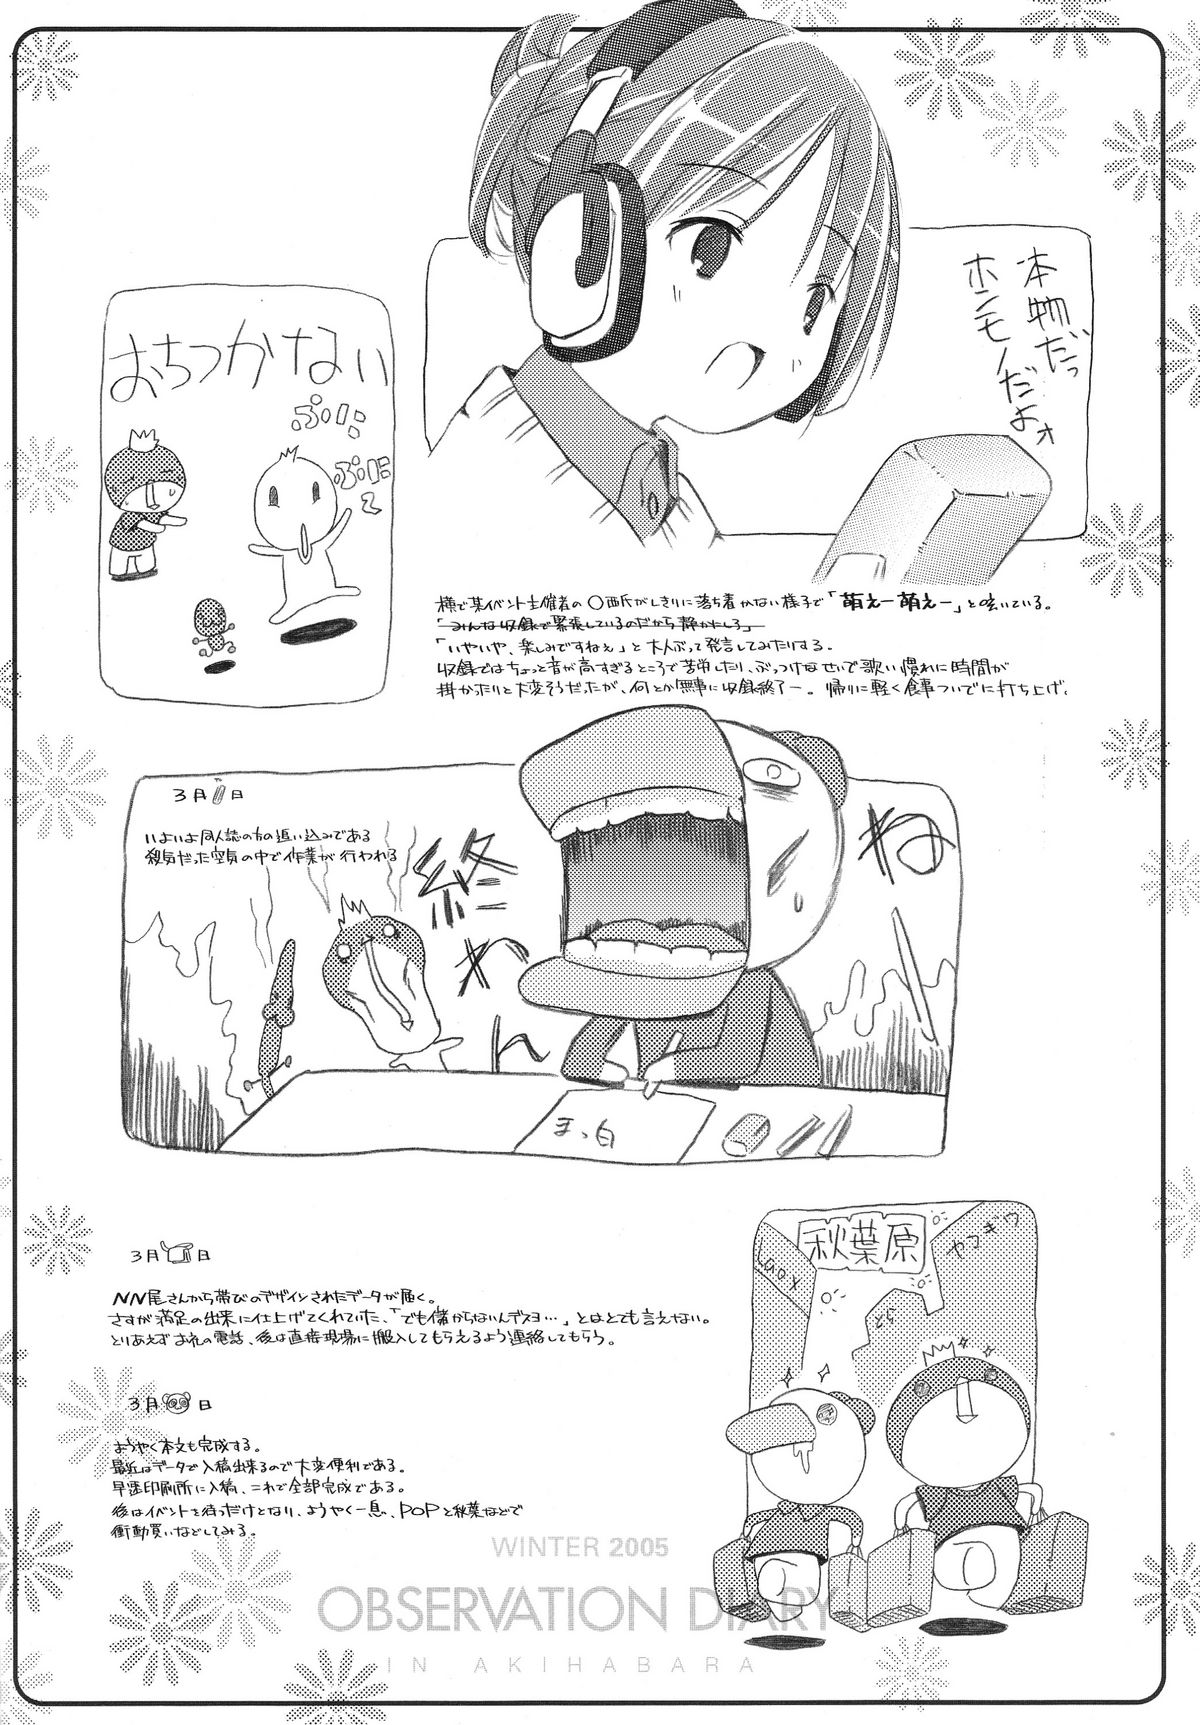 本物だっ
ホンモノだよォ
おちつかない
ぷに
ぷに
様で某イベント主催者の〇西氏がしきりに落ち着かない様子で「萌えー萌えー」と呟いている。
「みんな収録で緊張しているのだから静かにしろ」
「いやいや、楽しみですねぇ」と大人ぶって発言してみたりする。
収録ではちょっと音が高すぎるところで苦労したり、ぶっつけなせいで歌い慣れに時間が
掛かったりと大変そうだったが、何とか無事に収録終了ー。帰りに軽く食事ついでに打ち上げ。
3月 日
いよいよ同人誌の方の追い込みである
殺気だった空気の中で作業が行われる
終わんねー
まっ白
3月 日
NN尾さんから帯びのデザインされたデータが届く。
さすが満足の出来に仕上げてくれていた、「でも儲からないんデスヨ…」とはとても言えない。
とりあえずお礼の電話、後は直接現場に搬入してもらえるよう連絡してもらう。
3月 日
ようやく本文も完成する。
最近はデータで入稿出来るので大変便利である。
早速印刷所に入稿、これで全部完成である。
後はイベントを待つだけとなり、ようやく一息、POPと秋葉などで
衝動買いなどしてみる。
秋葉原
Laox
ヤマギワ
WINTER 2005
OBSERVATION DIARY
IN AKIHABARA